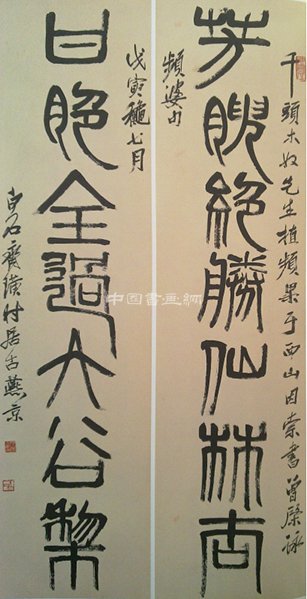 千頭木奴先生植頻果于西山因索書曾棨詠
芳腴絕勝仙林杏
頻婆句
戊寅穐七月
甘脃全過大谷棃
白石齊璜時居古燕京
中国書画網